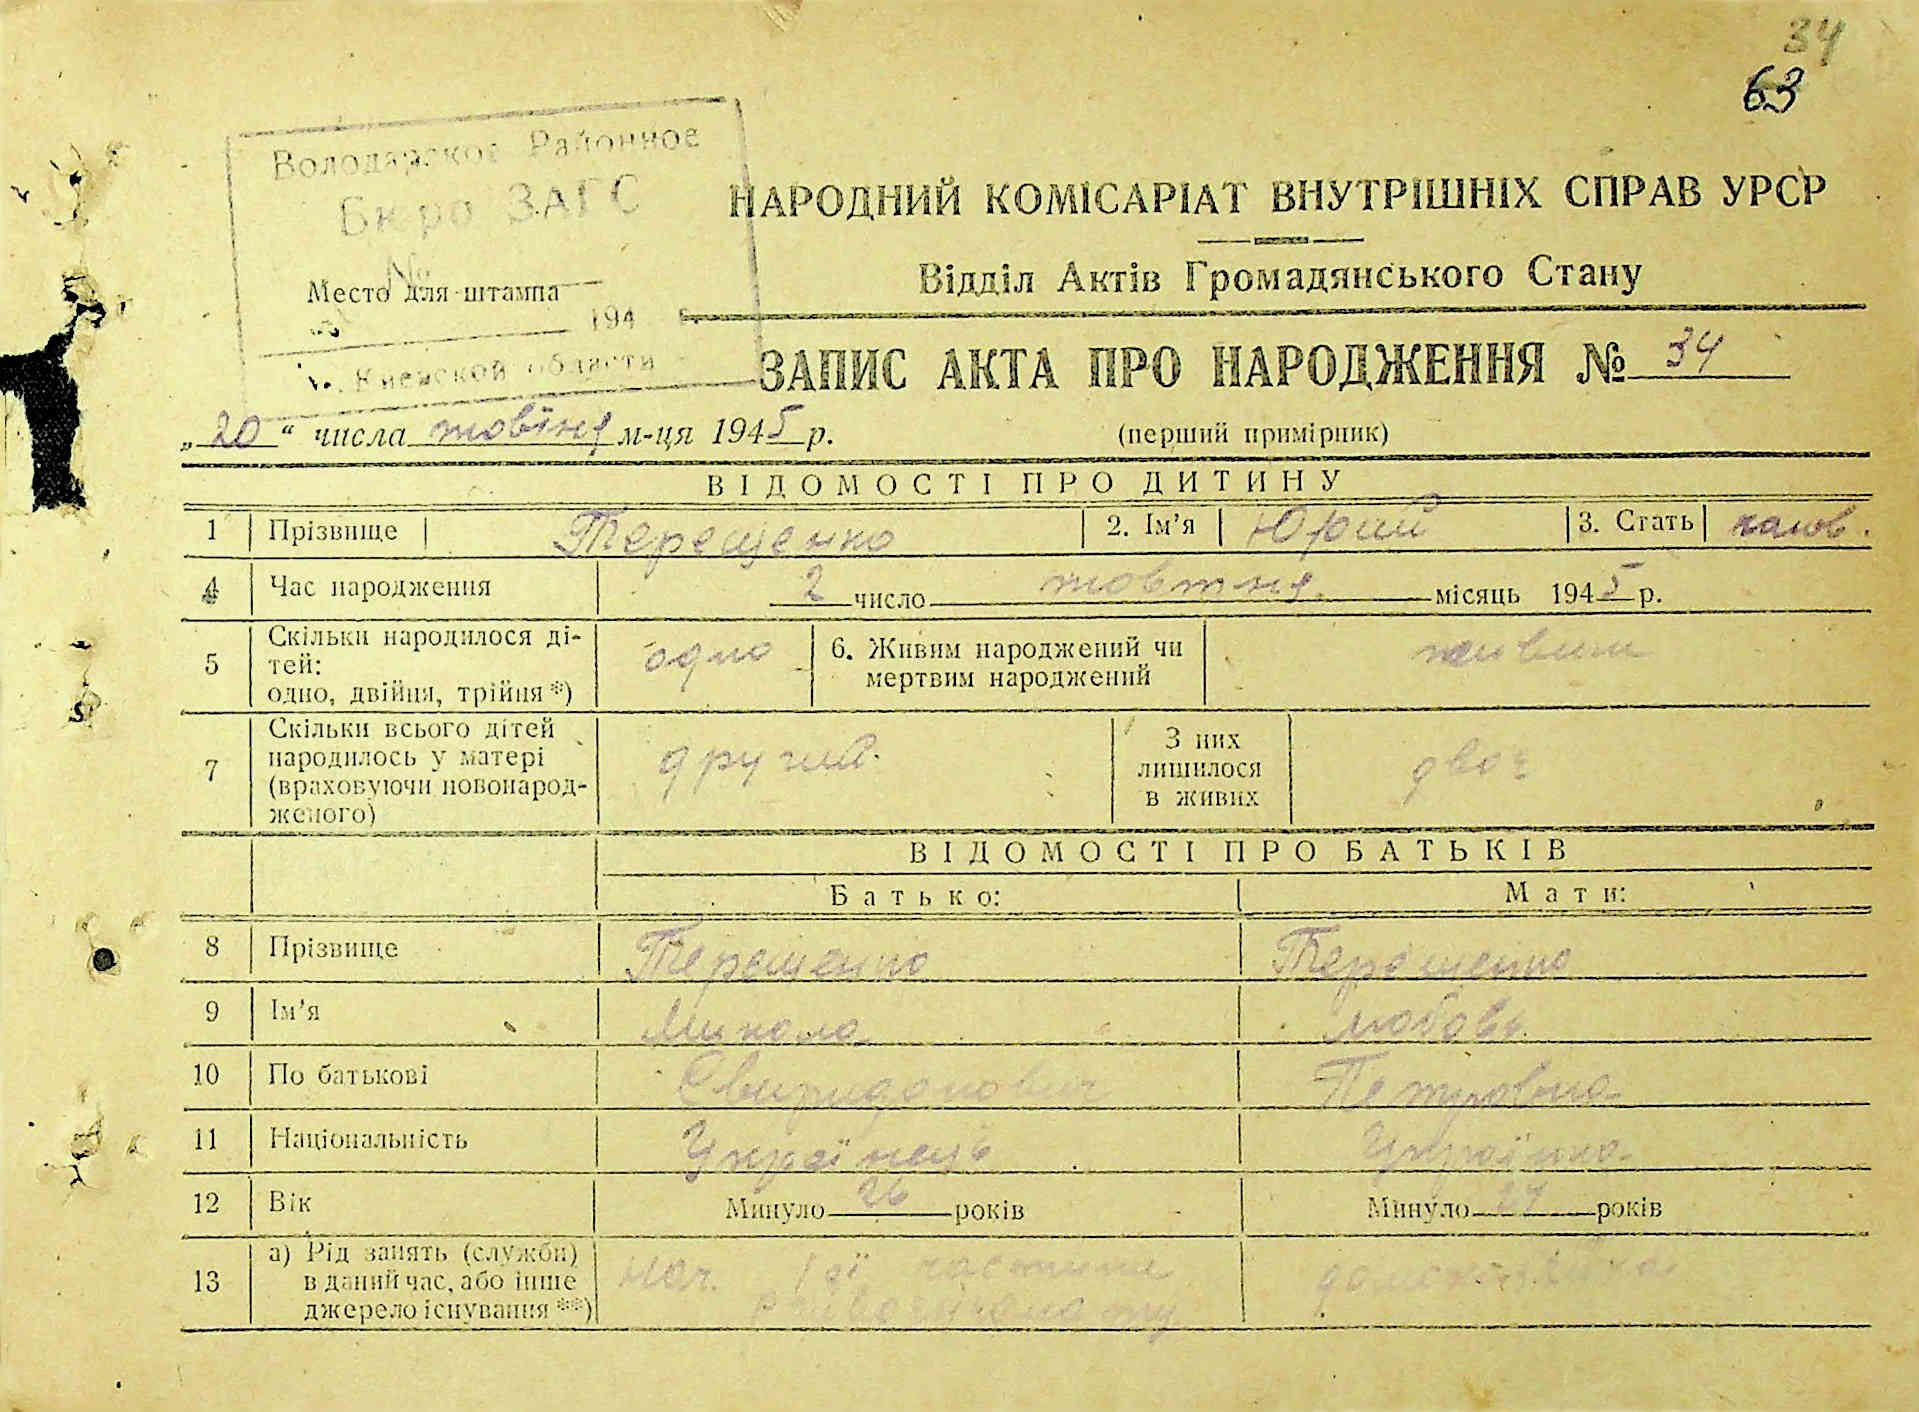 34
63
Володарское Районное
Бюро ЗАГС
№
Место для штампа
194
Киевской области
НАРОДНИЙ КОМІСАРІАТ ВНУТРІШНІХ СПРАВ УРСР
Відділ Актів Громадянського Стану
ЗАПИС АКТА ПРО НАРОДЖЕННЯ № 34
„20“ числа м-ця 1945 р. (перший примірник)
ВІДОМОСТІ ПРО ДИТИНУ
1 Прізвище Терещенко 2. Ім'я Юрий 3. Стать
4 Час народження 2 число жовтня місяць 1945 р.
5 Скільки народилося ді-
тей:
одно, двійня, трійня *) одно 6. Живим народжений чи
мертвим народжений живим
7 Скільки всього дітей
народилось у матері
(враховуючи новонарод-
женого) другий. З них
лишилося
в живих двоє
ВІДОМОСТІ ПРО БАТЬКІВ
Батько: Мати:
8 Прізвище Терещенко Терещенко
9 Ім'я Микола Любовь
10 По батькові Свиридонович Петровна
11 Національність Українець Українка
12 Вік Минуло 26 років Минуло років
13 а) Рід занять (служби)
в даний час, або інше
джерело існування **) Нач. частини
райвоєнкомату домохазяйка